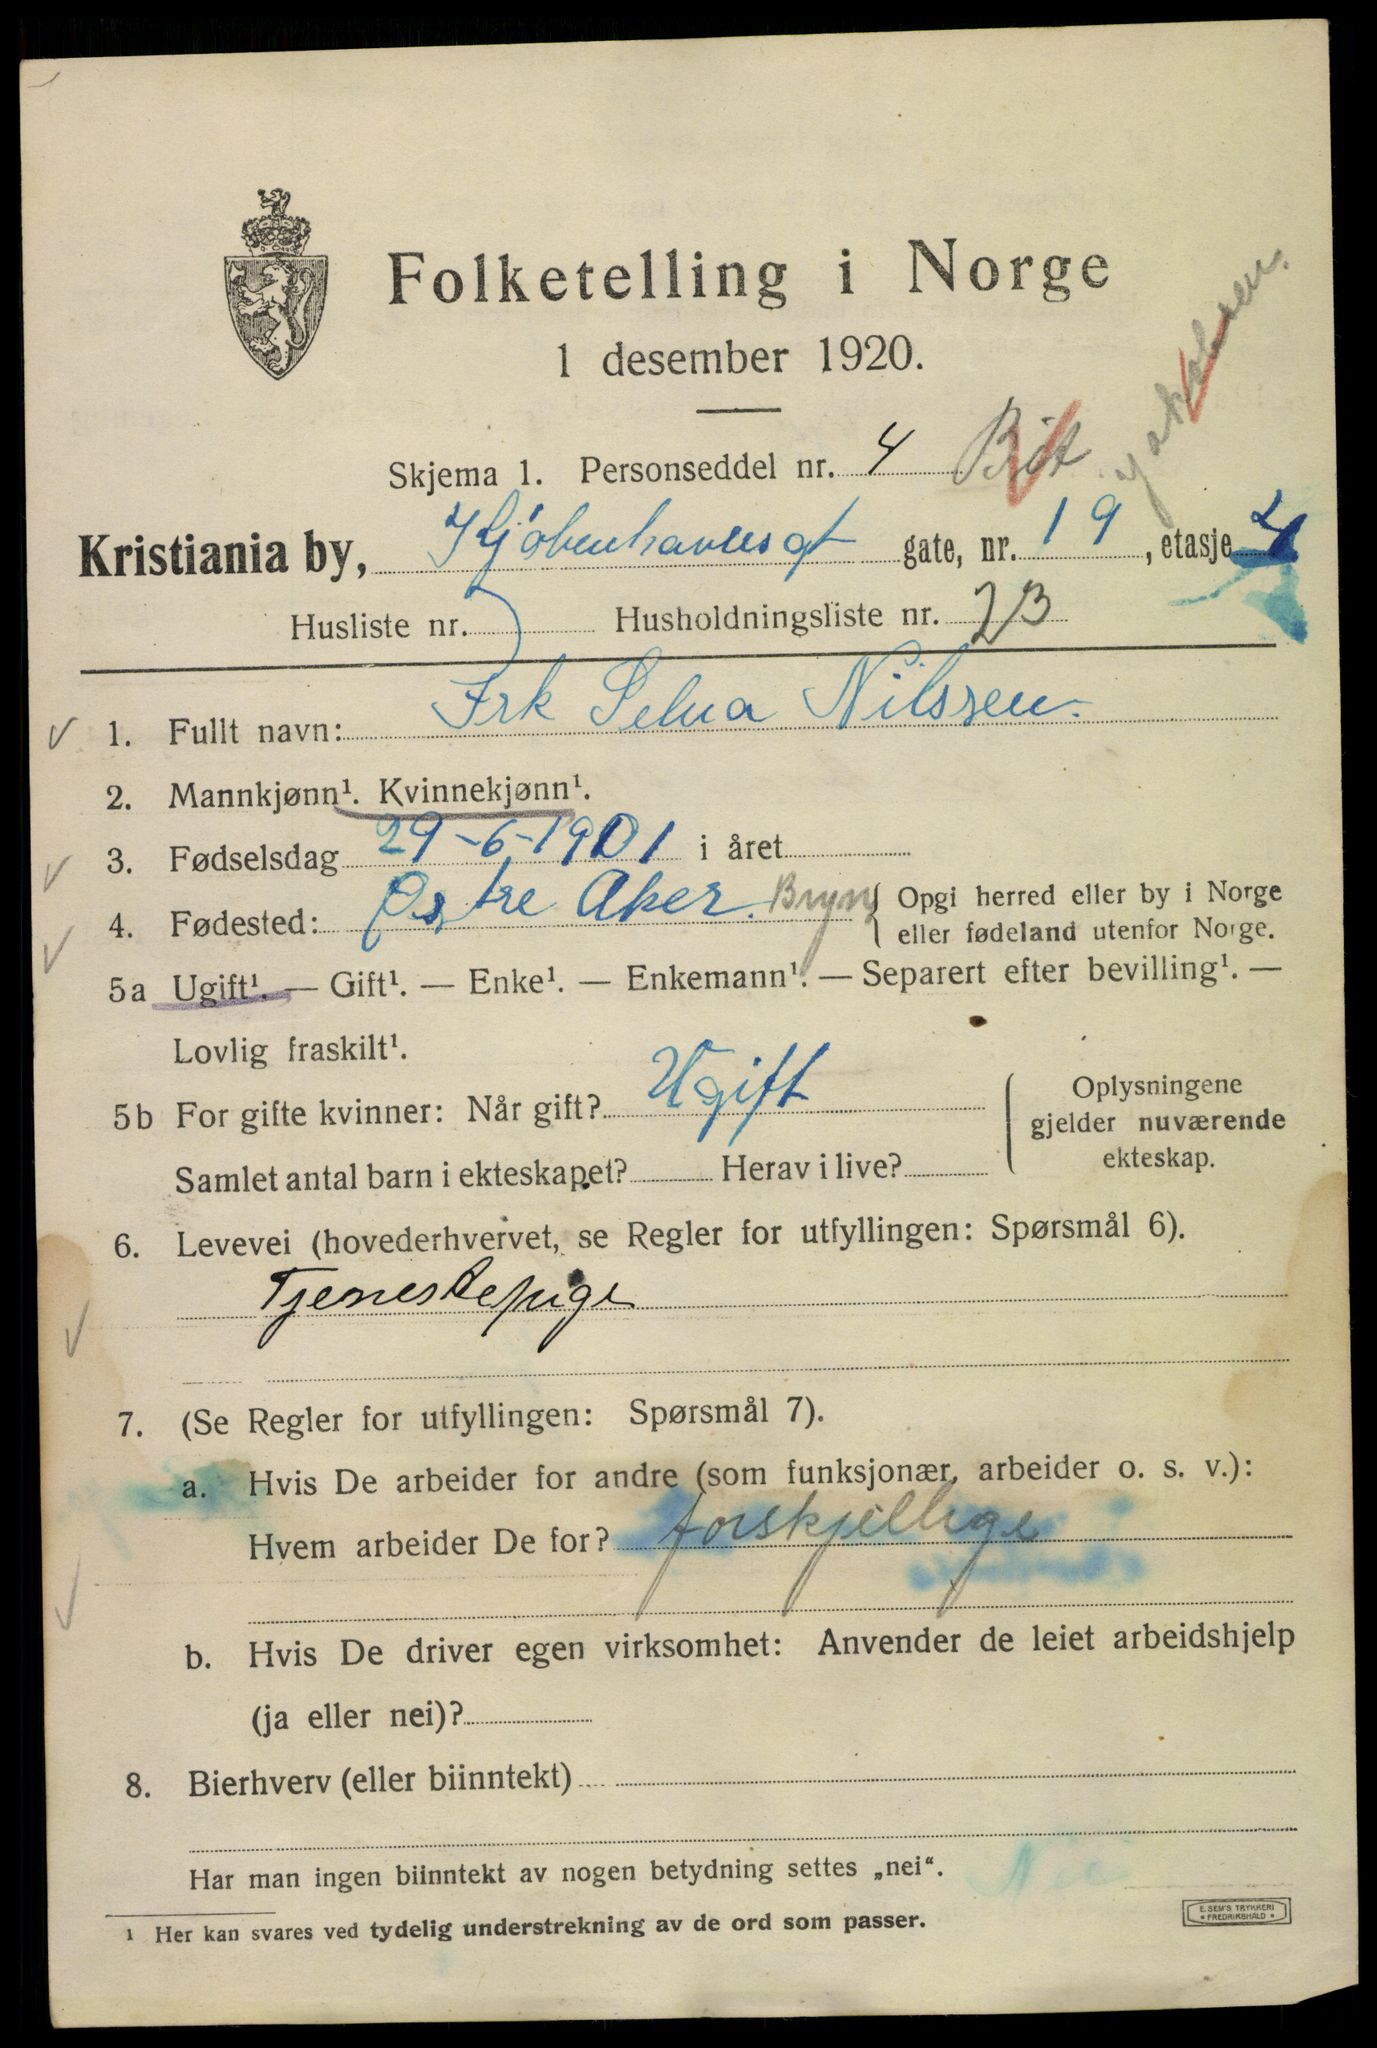 Folketelling i Norge
1 desember 1920.
Jakobsen.
Skjema 1. Personseddel nr. 4
Kristiania by, Kjøbenhavnsgt gate, nr. 19, etasje 4
Husliste nr. Husholdningsliste nr. 23
1. Fullt navn: Frk Selma Nilssen.
2. Mannkjønn¹. Kvinnekjønn¹.
3. Fødselsdag 29-6-1901 i året
4. Fødested: Østre Aker. Bryn { Opgi herred eller by i Norge
eller fødeland utenfor Norge.
5a Ugift¹. — Gift¹. — Enke¹. — Enkemann¹. — Separert efter bevilling¹. —
Lovlig fraskilt¹.
5b For gifte kvinner: Når gift? Ugift
Samlet antal barn i ekteskapet? Herav i live?
Oplysningene
gjelder nuværende
ekteskap.
6. Levevei (hovederhvervet, se Regler for utfyllingen: Spørsmål 6).
Tjenestepige
7. (Se Regler for utfyllingen: Spørsmål 7).
a. Hvis De arbeider for andre (som funksjonær, arbeider o. s. v.):
Hvem arbeider De for? forskjellige
b. Hvis De driver egen virksomhet: Anvender de leiet arbeidshjelp
(ja eller nei)?
8. Bierhverv (eller biinntekt)
Har man ingen biinntekt av nogen betydning settes „nei“.
Nei
¹ Her kan svares ved tydelig understrekning av de ord som passer.
E. SEM'S TRYKKERI
• FREDRIKSHALD •